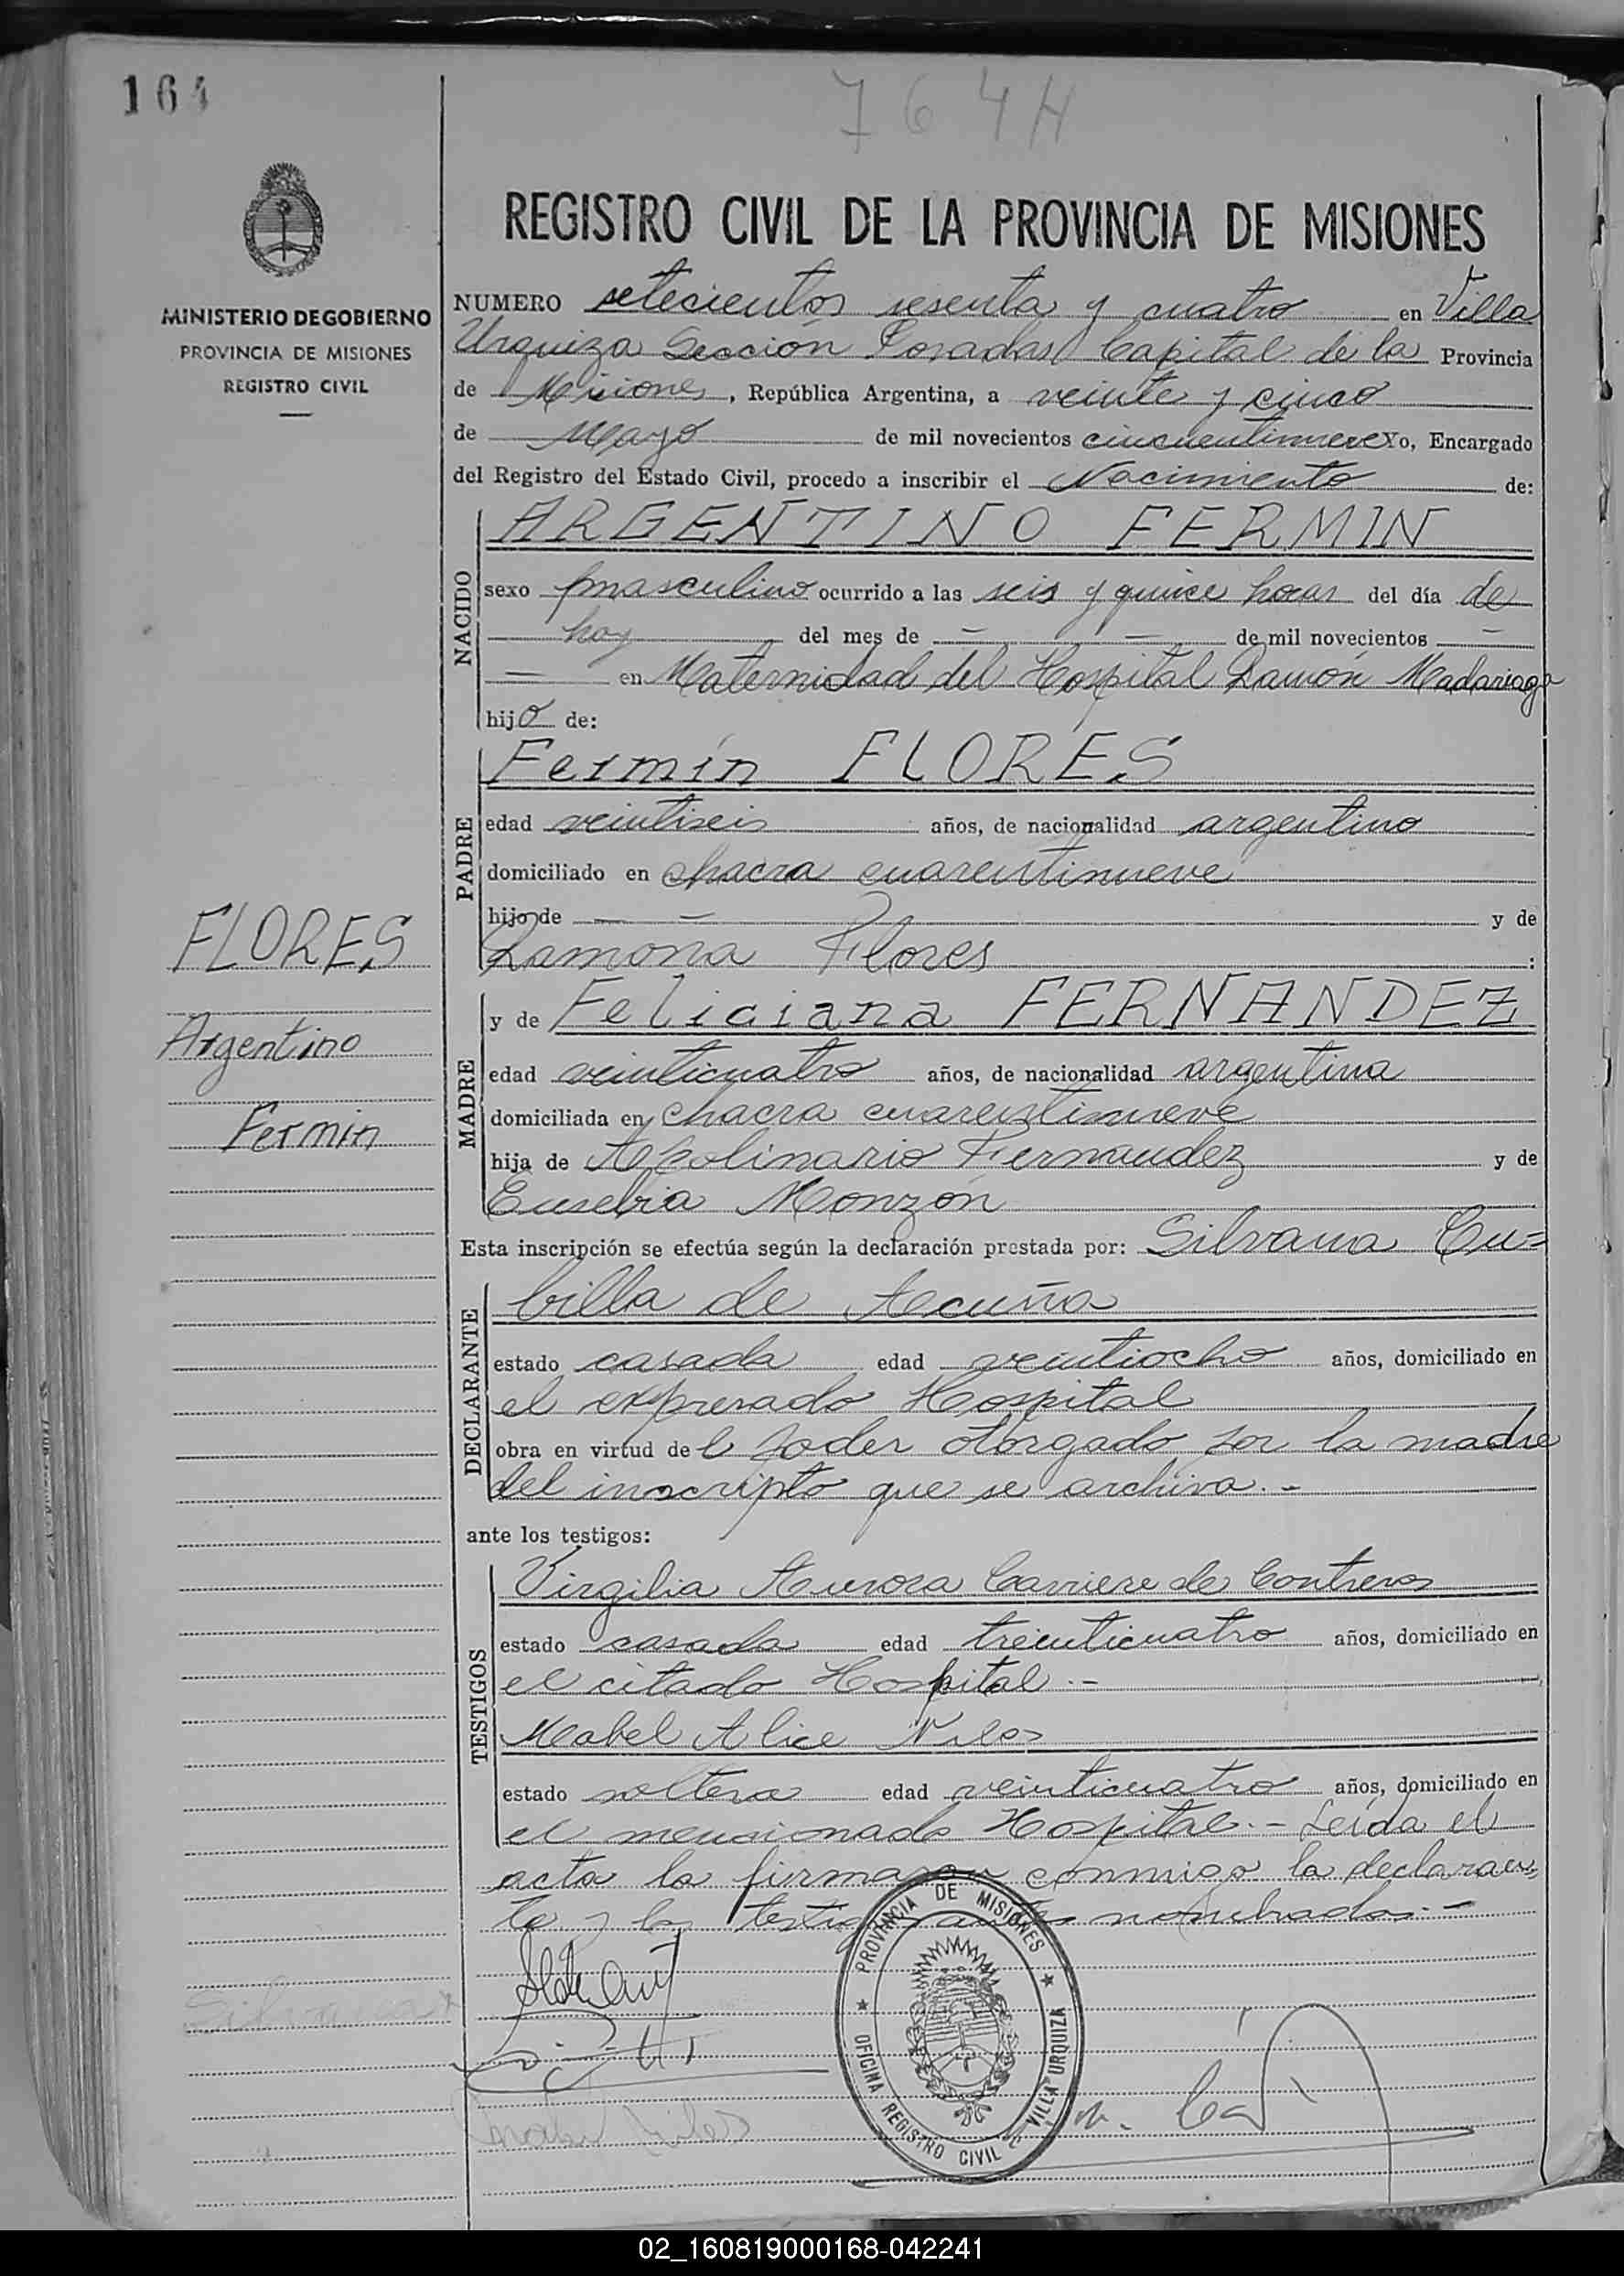 164
764H
REGISTRO CIVIL DE LA PROVINCIA DE MISIONES
MINISTERIO DE GOBIERNO
PROVINCIA DE MISIONES
REGISTRO CIVIL
NUMERO setecientos sesenta y cuatro en Villa
Urquiza Sección Posadas Capital de la Provincia
de Misiones, República Argentina, a veinte y cinco
de Mayo de mil novecientos cincuentinueve Yo, Encargado
del Registro del Estado Civil, procedo a inscribir el Nacimiento de:
NACIDO
ARGENTINO FERMIN
sexo masculino ocurrido a las seis y quince horas del día de
hoy del mes de — — de mil novecientos —
— en Maternidad del Hospital Ramón Madariaga
hijo de:
PADRE
Fermín FLORES
edad veintiseis años, de nacionalidad argentino
domiciliado en chacra cuarentinueve
hijo de — — y de
Ramona Flores :
FLORES
Argentino
Fermin
MADRE
y de Feliciana FERNANDEZ
edad veinticuatro años, de nacionalidad argentina
domiciliada en chacra cuarentinueve
hija de Apolinario Fernandez y de
Eusebia Monzón
Esta inscripción se efectúa según la declaración prestada por: Silvana Cu=
DECLARANTE
billa de Acuña
estado casada edad veintiocho años, domiciliado en
el expresado Hospital
obra en virtud de l poder otorgado por la madre
del inscripto que se archiva.-
ante los testigos:
TESTIGOS
Virgilia Aurora Carriere de Contreras
estado casada edad treinticuatro años, domiciliado en
el citado Hospital.-
Mabel Alice
estado soltera edad veinticuatro años, domiciliado en
el mencionado Hospital.- Leída el
acta la firmaron conmigo la declaran=
te y los testigos antes nombrados.-
PROVINCIA DE MISIONES
OFICINA REGISTRO CIVIL DE VILLA URQUIZA
02_160819000168-042241